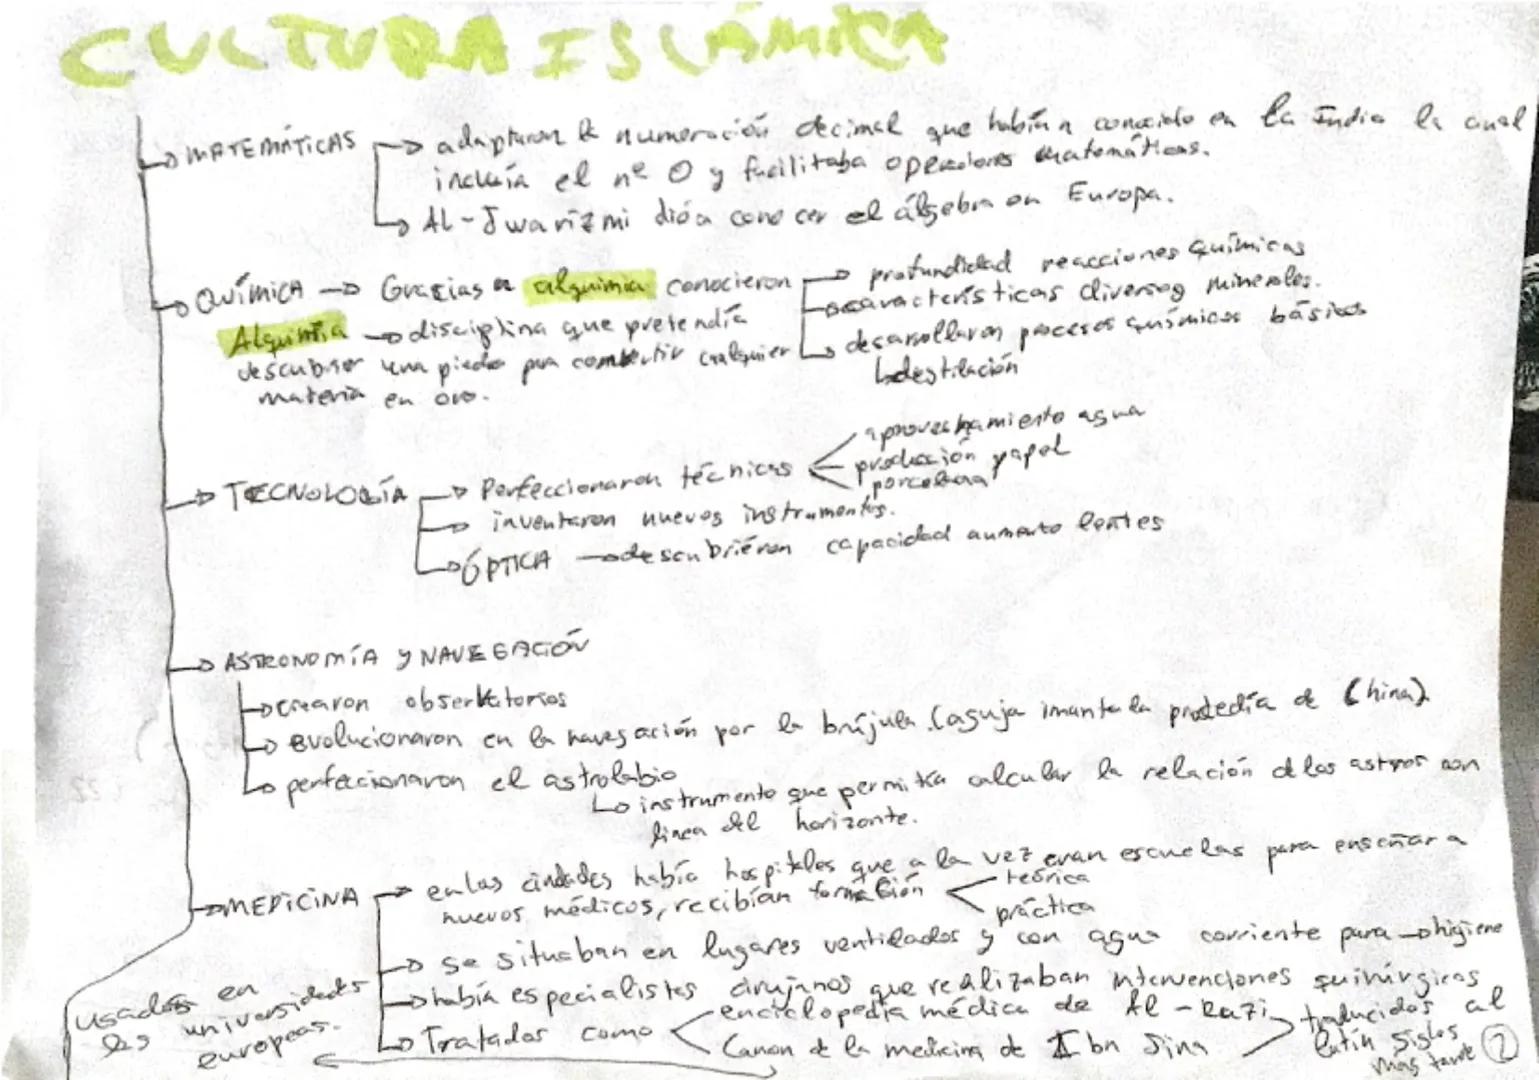 CULTURA ISLÁMICA
MATEMÁTICAS → adaptaron la numeración decimal que habían conocido en la India la cual
incluía el nº 0 y facilitaba operaciones matemáticas.
→ AL-Jwarizmi dió a conocer el álgebra en Europa.
QUÍMICA → Gracias a alquimia conocieron → profundidad reacciones químicas
→ características diversos minerales.
Alquimia → disciplina que pretendía
→ desarrollaron procesos químicos básicos
descubrir una piedra para combertir cualquier
↳ destilación
materia en oro.
TECNOLOGÍA → Perfeccionaron técnicas
aprovechamiento agua
producción papel
porcelana
→ inventaron nuevos instrumentos.
→ ÓPTICA → descubrieron capacidad aumento lentes
→ ASTRONOMÍA Y NAVEGACIÓN
→ crearon observatorios
→ evolucionaron en la navegación por la brújula (aguja imantada procedía de China)
→ perfeccionaron el astrolabio
↳ instrumento que permitía calcular la relación d los astros con
línea del horizonte.
→ MEDICINA → en las ciudades había hospitales que a la vez eran escuelas para enseñar a
nuevos médicos, recibían formación
teórica
práctica
→ se situaban en lugares ventilados y con agua corriente para → higiene
→ había especialistas cirujanos que realizaban intervenciones quirúrgicas
→ Tratados como
enciclopedia médica de Al-Razi
Canon de la medicina de Ibn Sina
traducidos al
latín siglos
más tarde
2
usados en
las universidades
europeas.